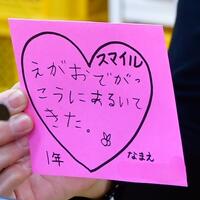 スマイル
えがおでがっ
こうにあるいて
きた。
1年
なまえ